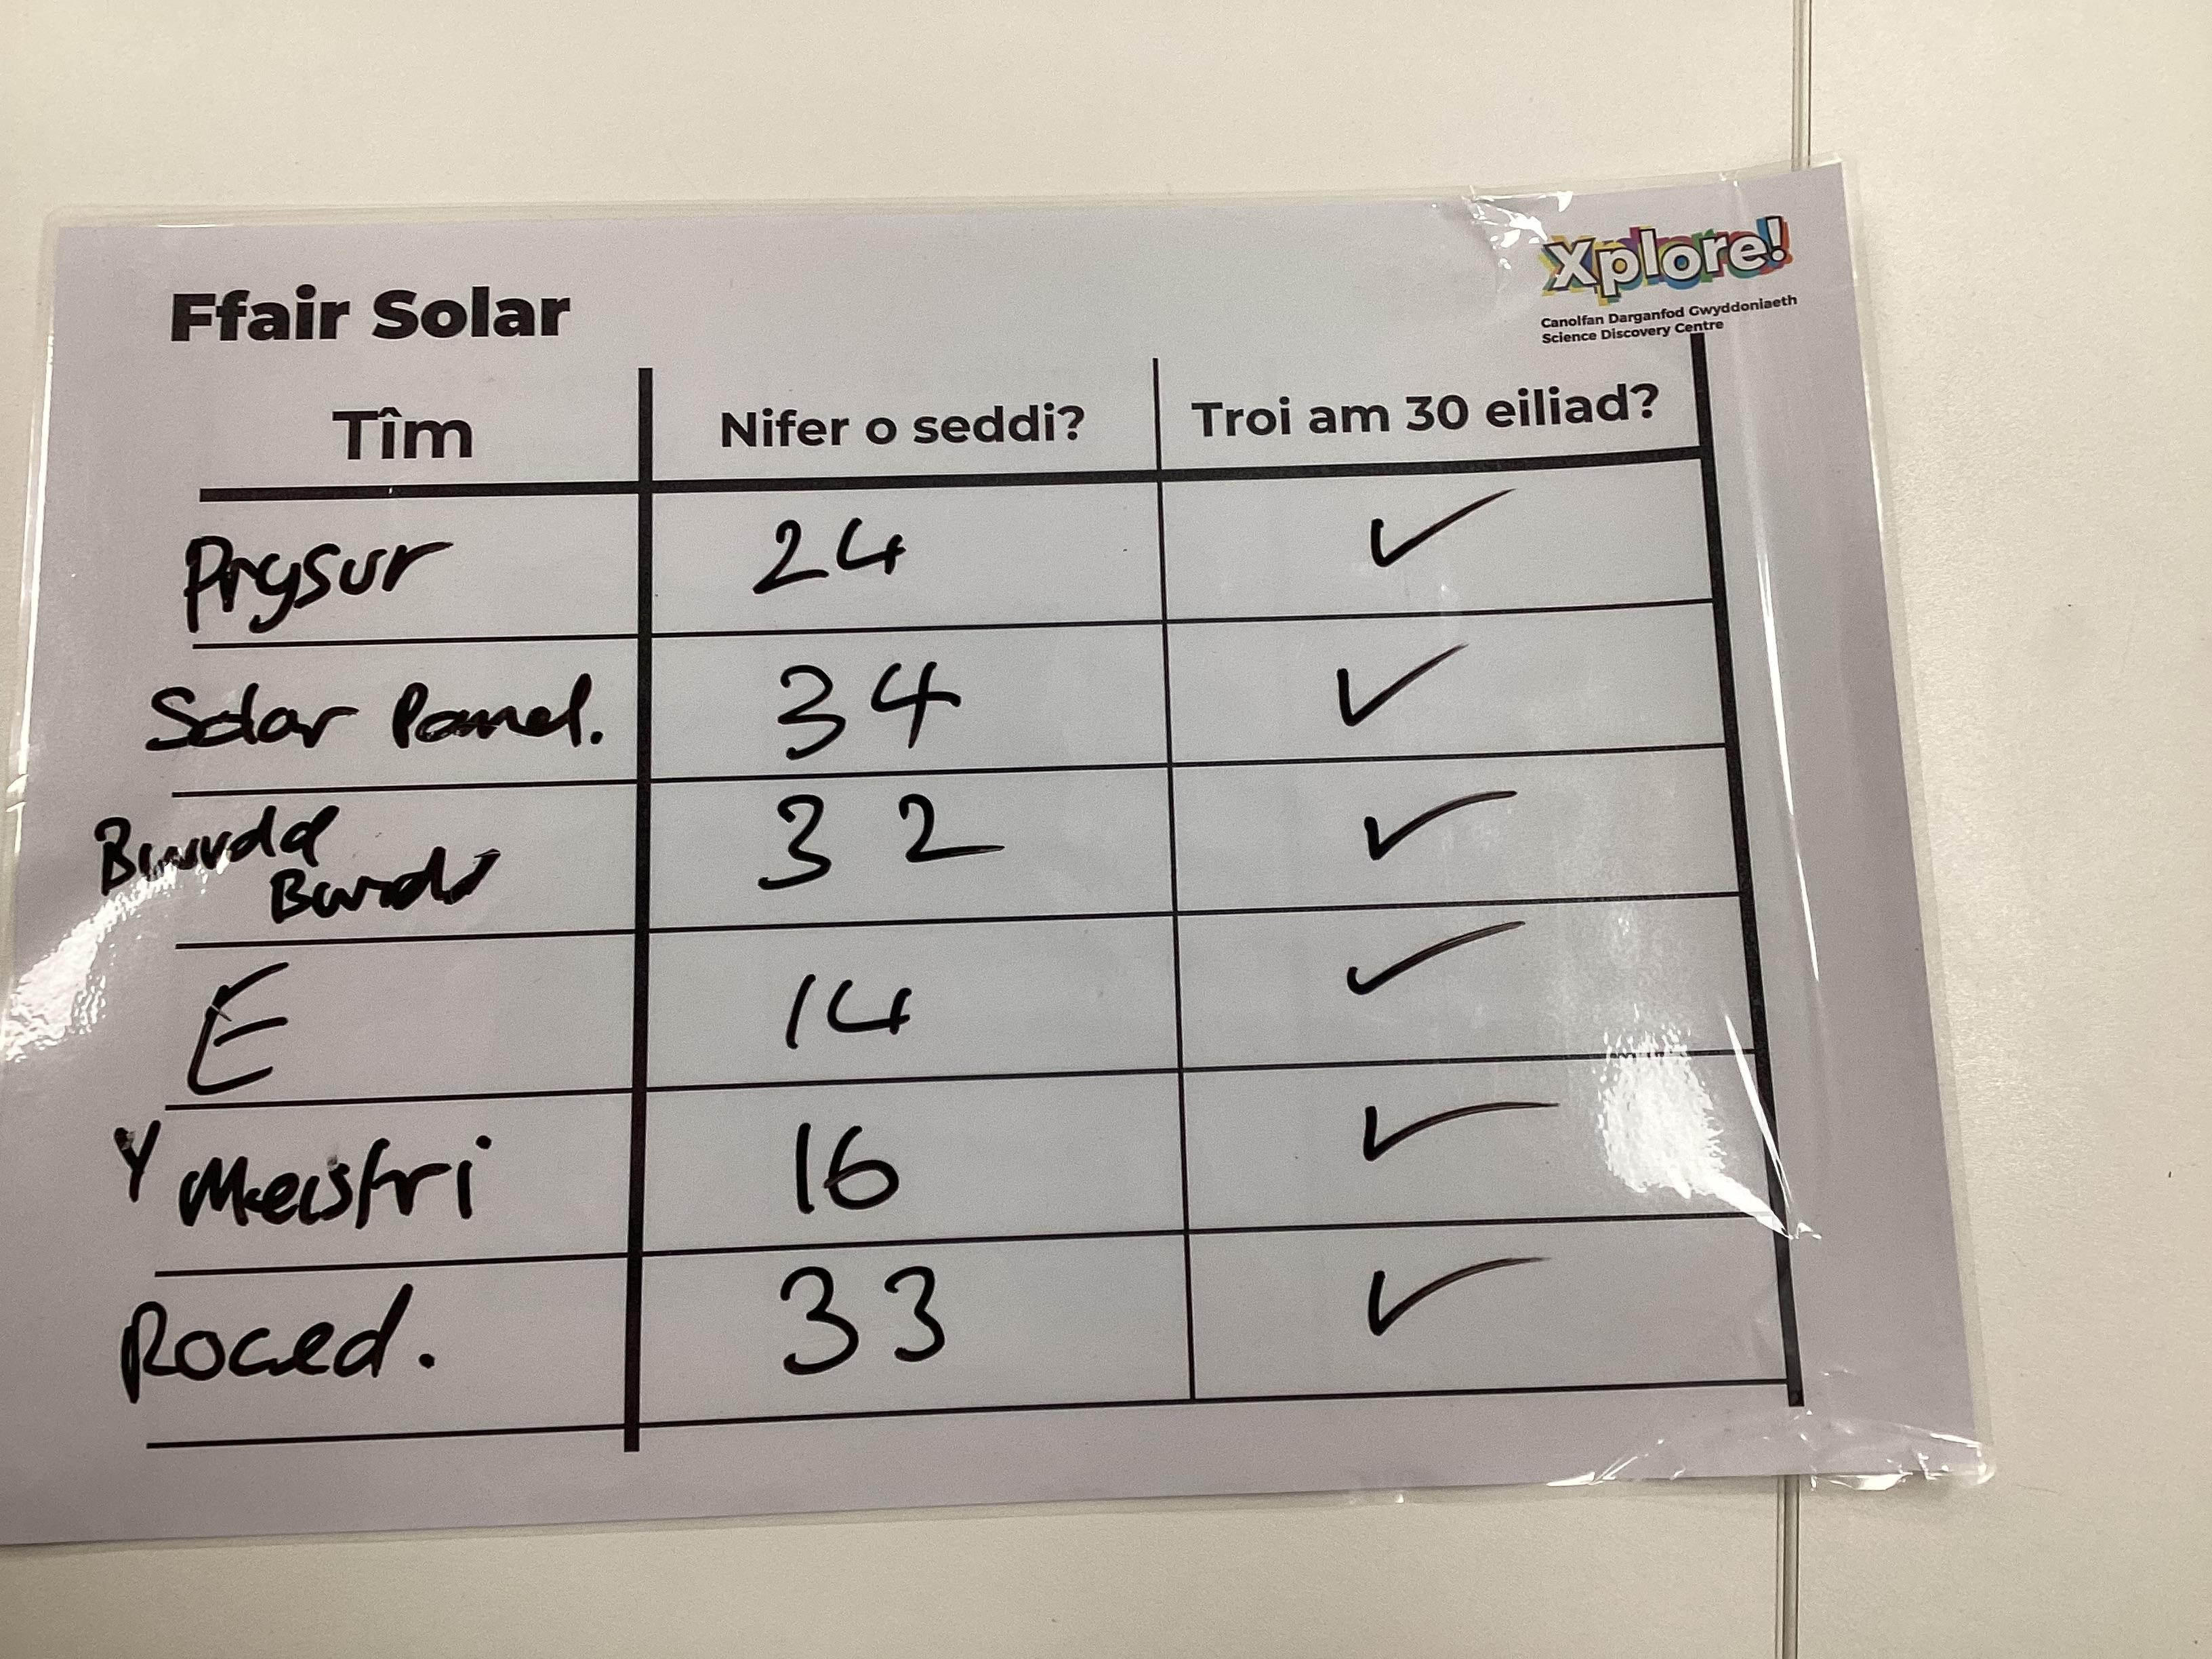 Xplore!
Canolfan Darganfod Gwyddoniaeth
Science Discovery Centre
Ffair Solar
Tîm Nifer o seddi? Troi am 30 eiliad?
Prysur 24 ✓
Solar Panel. 34 ✓
Bwrdd
32 ✓
E 14 ✓
Y Meistri 16 ✓
Roced. 33 ✓